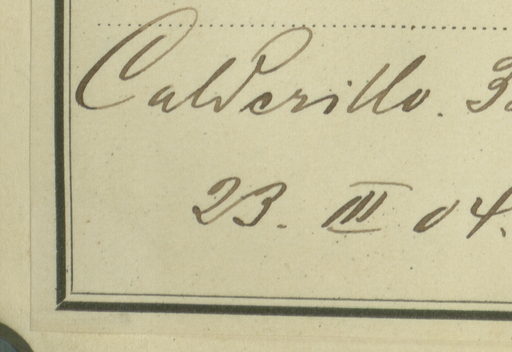 Calderillo.
23. III 04.